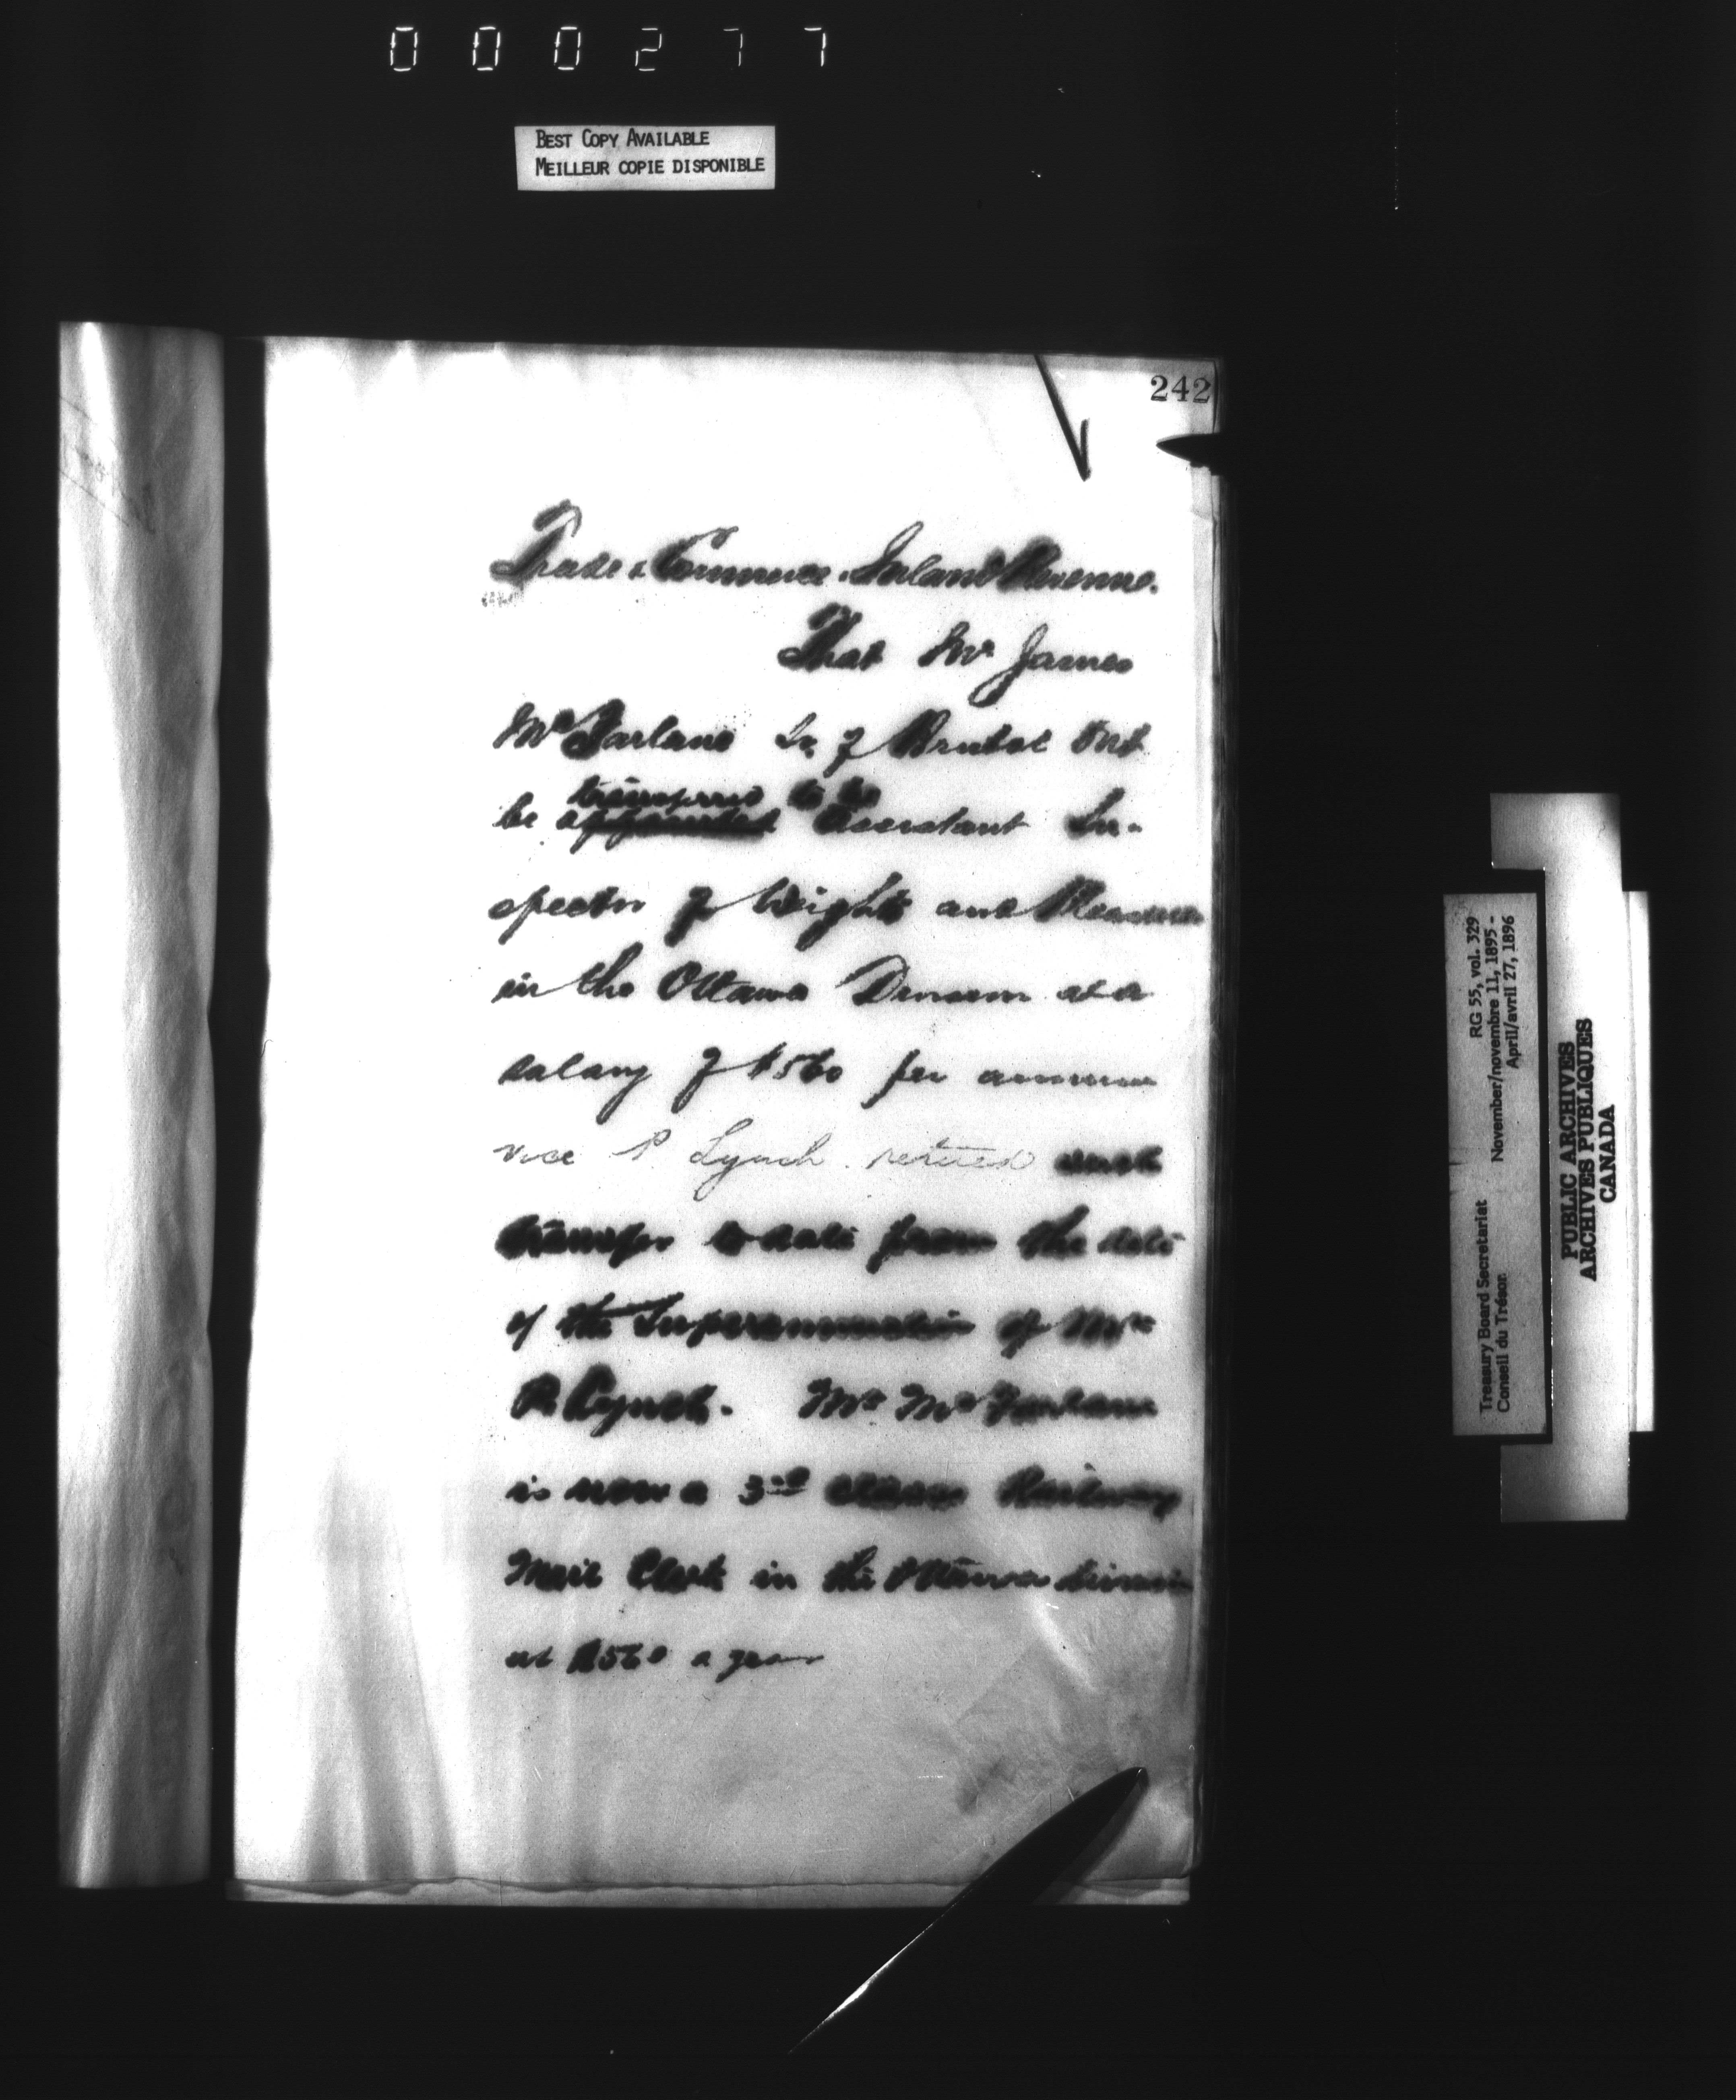 000277
BEST COPY AVAILABLE
MEILLEUR COPIE DISPONIBLE
242
Trade & Commerce. Inland Revenue.
That Mr James
McFarlane Jr. of Bristol Ont
transferred to be
be appointed Assistant In-
spector of Weights and Measures
in the Ottawa Division at a
salary of $560 per annum
vice P. Lynch. retired such
transfer to date from the date
of the Superannuation of Mr
P. Lynch. Mr McFarlane
is now a 3rd class Railway
Mail Clerk in the Ottawa division
at $560 a year
Treasury Board Secretariat RG 55, vol. 329
Conseil du Trésor November/novembre 11, 1895 -
April/avril 27, 1896
PUBLIC ARCHIVES
ARCHIVES PUBLIQUES
CANADA